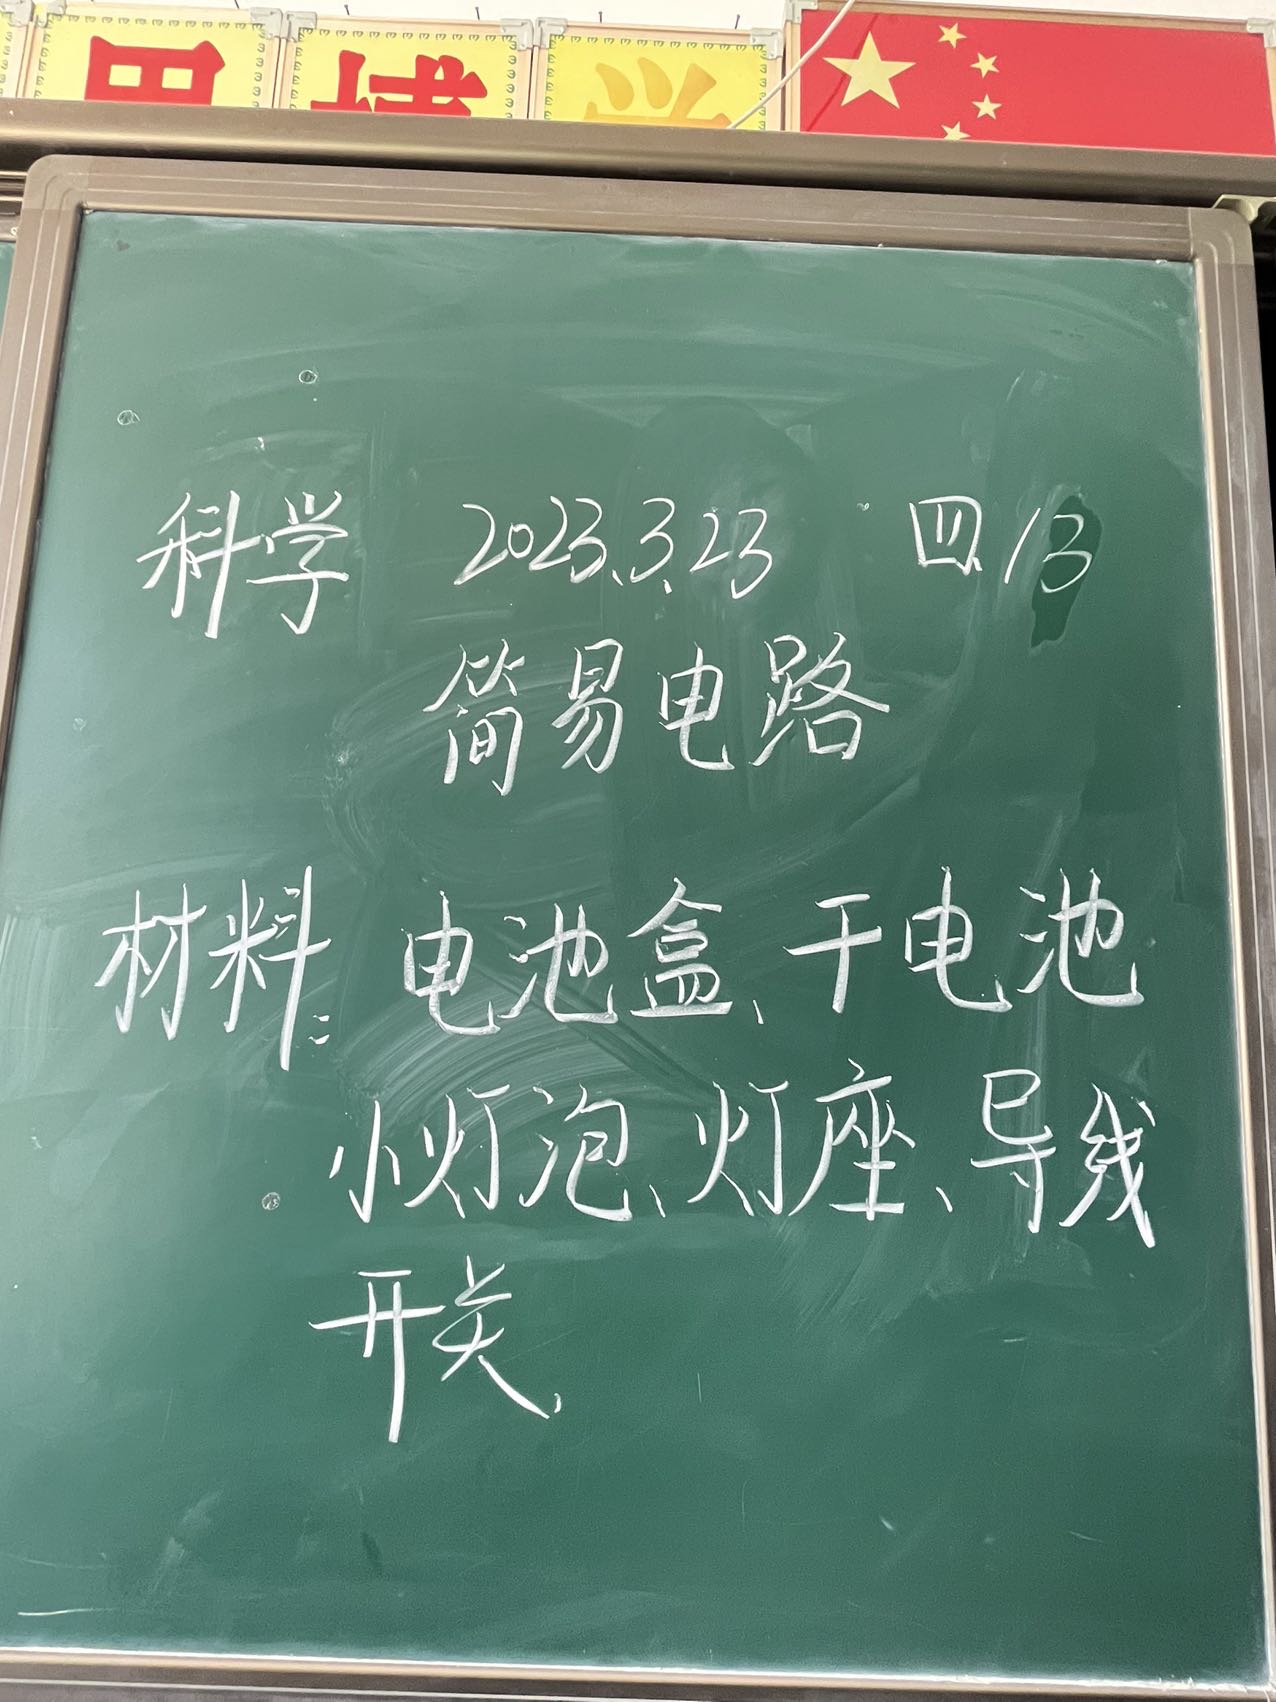 科学 2023.3.23 四.13
简易电路
材料: 电池盒、干电池
小灯泡、灯座、导线
开关、